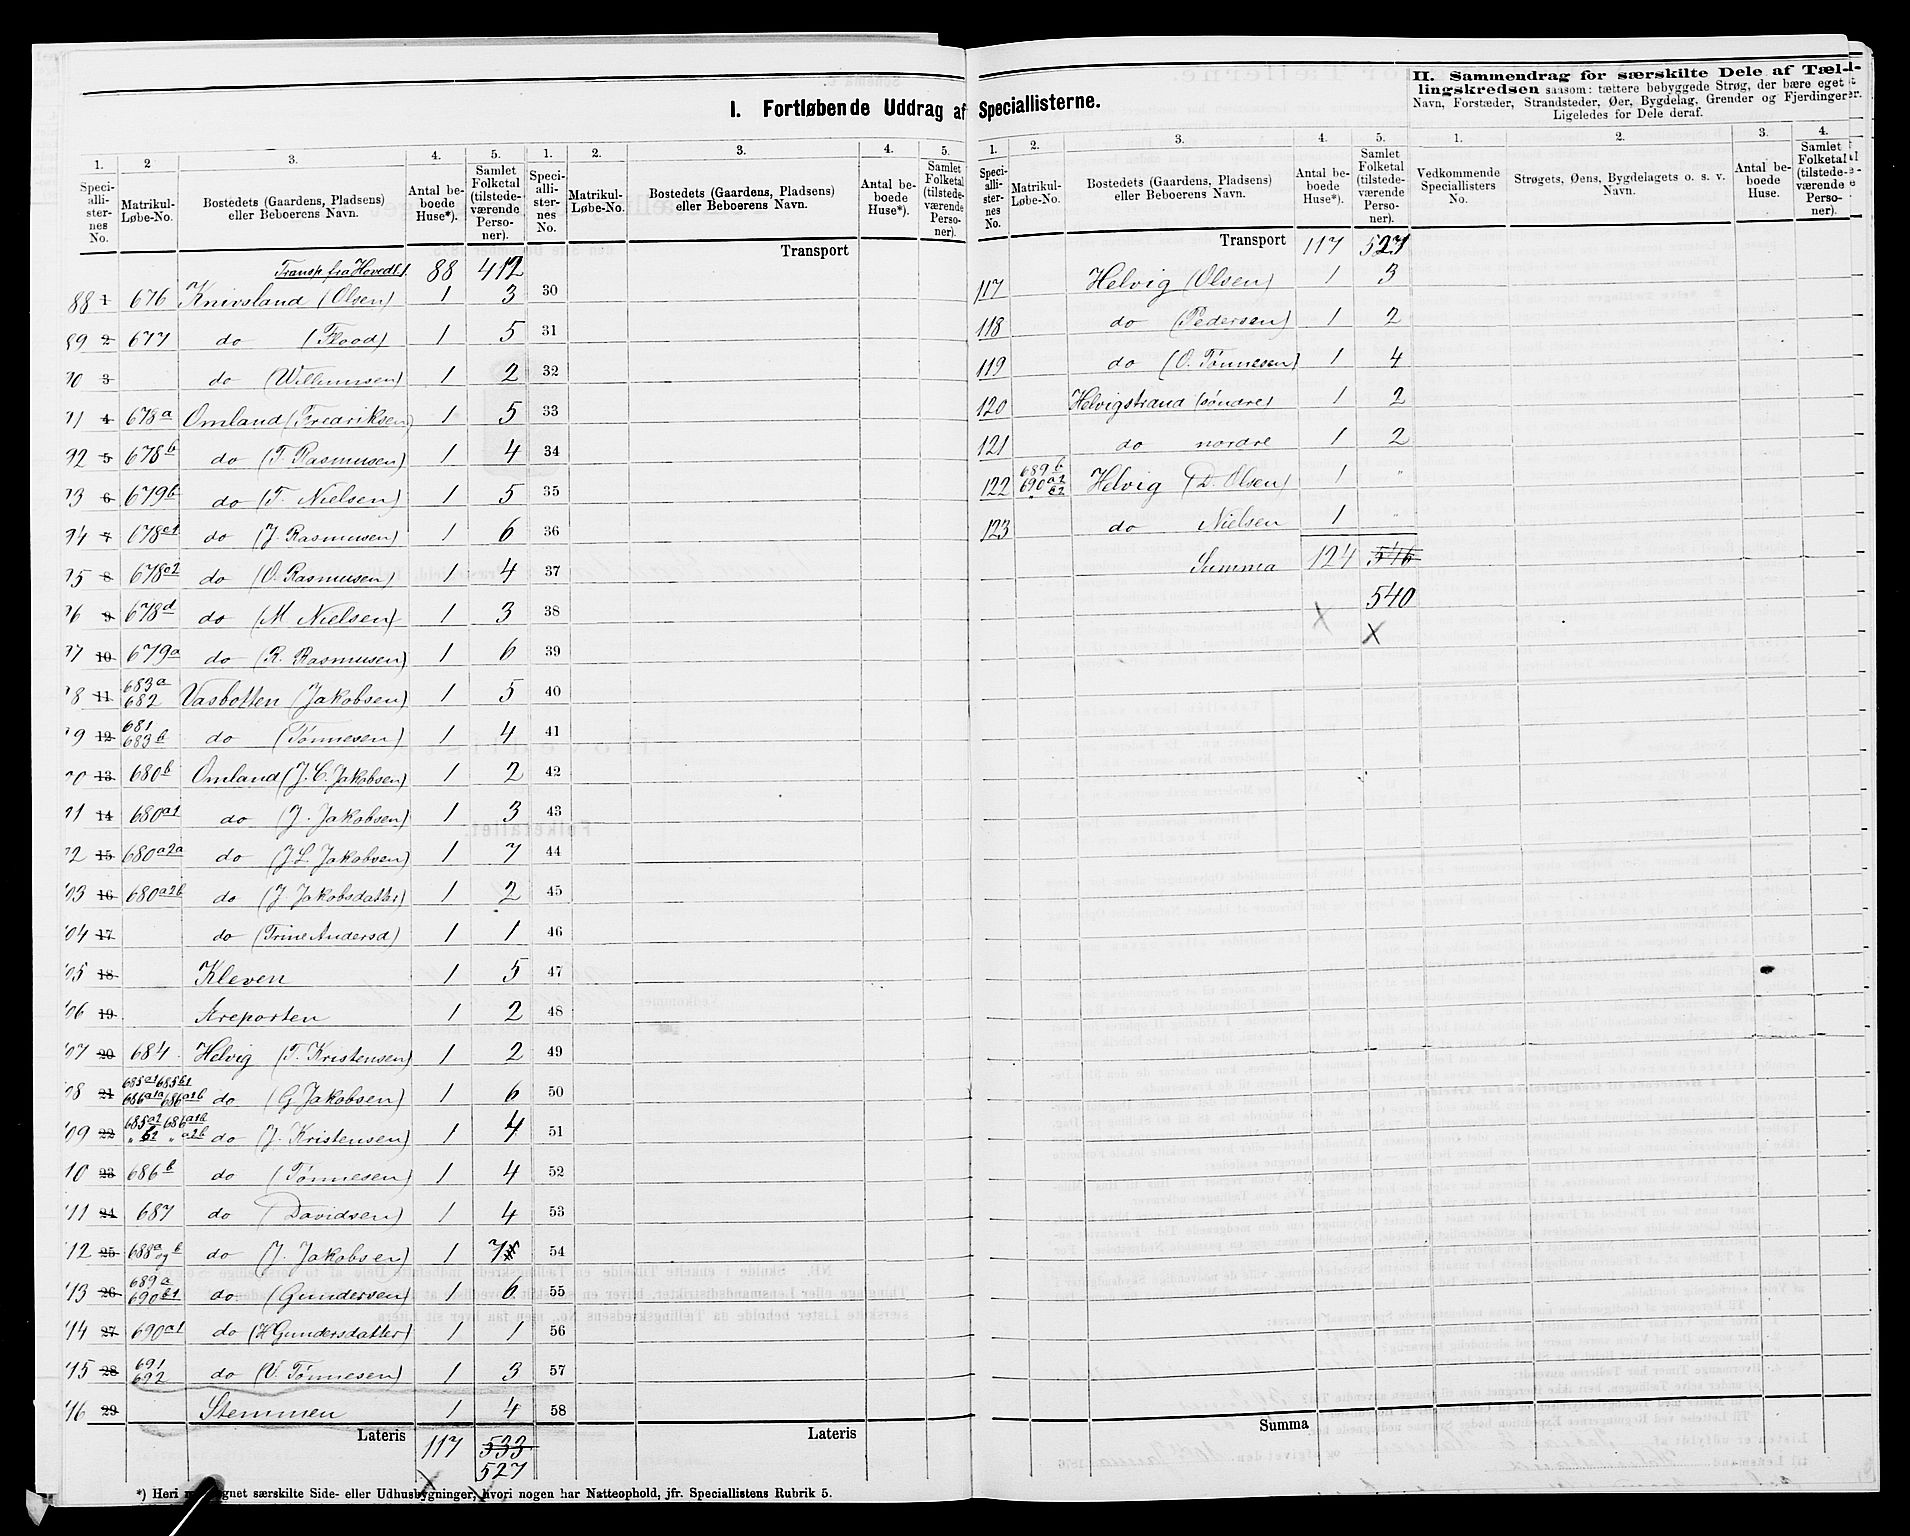 I. Fortløbende Uddrag af Speciallisterne.
1. 2 3. 4. 5. 1. 2. 3. 4. 5.
Speci-allister-nes No. Matrikul-Løbe-No. Bostedets (Gaardens, Pladsens) eller Beboerens Navn. Antal be-boede Huse*). Samlet Folketal (tilstede-værende Perso-ner). Speci-alli-ster-nes No. Matrikul-Løbe-No. Bostedets (Gaardens, Pladsens) eller Beboerens Navn. Antal be-boede Huse*). Samlet Folketal (tilstede-værende Perso-ner).
Transport
Transp. fra Hovedl. 88 412
88 1 676 Knivsland (Olsen) 1 3 30
89 2 677 do (Flood) 1 5 31
90 3 do (Willumsen) 1 2 32
91 4 678a Omland (Fredriksen) 1 5 33
92 5 678b do (T. Rasmusen) 1 4 34
93 6 679b do (T. Nielsen) 1 5 35
94 7 678c1 do (J. Rasmusen) 1 6 36
95 8 678c2 do (O. Rasmusen) 1 4 37
96 9 678d do (M Nielsen) 1 3 38
97 10 679a do (R. Rasmusen) 1 6 39
98 11 683a 682 Vasbotten (Jakobsen) 1 5 40
99 12 681 683b do (Tønnesen) 1 4 41
00 13 680b Omland (J. C. Jakobsen) 1 2 42
01 14 680a1 do (J. Jakobsen) 1 3 43
02 15 680a2a do (J L. Jakobsen) 1 7 44
03 16 680a2b do (J Jakobsdatter) 1 2 45
04 17 do (Trine Andersd) 1 1 46
05 18 Kleven 1 5 47
06 19 Kreporten 1 2 48
07 20 684 Helvig (T. Kristensen) 1 2 49
08 21 685a1 685b1 686a1a 686a1b do (G Jakobsen) 1 6 50
09 22 685a2 686a1b " b2 " a2b do (J. Kristensen) 1 4 51
10 23 686b do (Tønnesen) 1 4 52
11 24 687 do (Davidsen) 1 4 53
12 25 688a og b do (J. Jakobsen) 1 7 54
13 26 689a 690b1 do (Gundersen) 1 6 55
14 27 690a1 do (H Gundersdatter) 1 1 56
15 28 691 692 do (V. Tønnesen) 1 3 57
16 29 Stemmen 1 4 58
Lateris 117 533 Lateris
527
*) Heri medregnet særskilte Side- eller Udhusbygninger, hvori nogen har Natteophold, jfr. Speciallistens Rubrik 5.
II. Sammendrag for særskilte Dele af Tæl-
lingskredsen saasom: tættere bebyggede Strøg, der bære eget
Navn, Forstæder, Strandsteder, Øer, Bygdelag, Grender og Fjerdinger.
Ligeledes for Dele deraf.
1. 2. 3. 4. 5. 1. 2. 3. 4.
Speci-alli-ster-nes No. Matrikul-Løbe-No. Bostedets (Gaardens, Pladsens) eller Beboerens Navn. Antal be-boede Huse*). Samlet Folketal (tilstede-værende Perso-ner). Vedkommende Speciallisters No. Strøgets, Øens, Bygdelagets o. s. v. Navn. Antal be-boede Huse. Samlet Folketal (tilstede-værende Perso-ner).
Transport 117 527
117 Helvig (Olsen) 1 3
118 do (Pedersen) 1 2
119 do (O. Tønnesen) 1 4
120 Helvigstrand (søndre) 1 2
121 do nordre 1 2
122 689b 690a2 " c2 Helvig (D. Olsen) 1 "
123 do Nielsen 1 "
Summa 124 546
540
X X
Summa